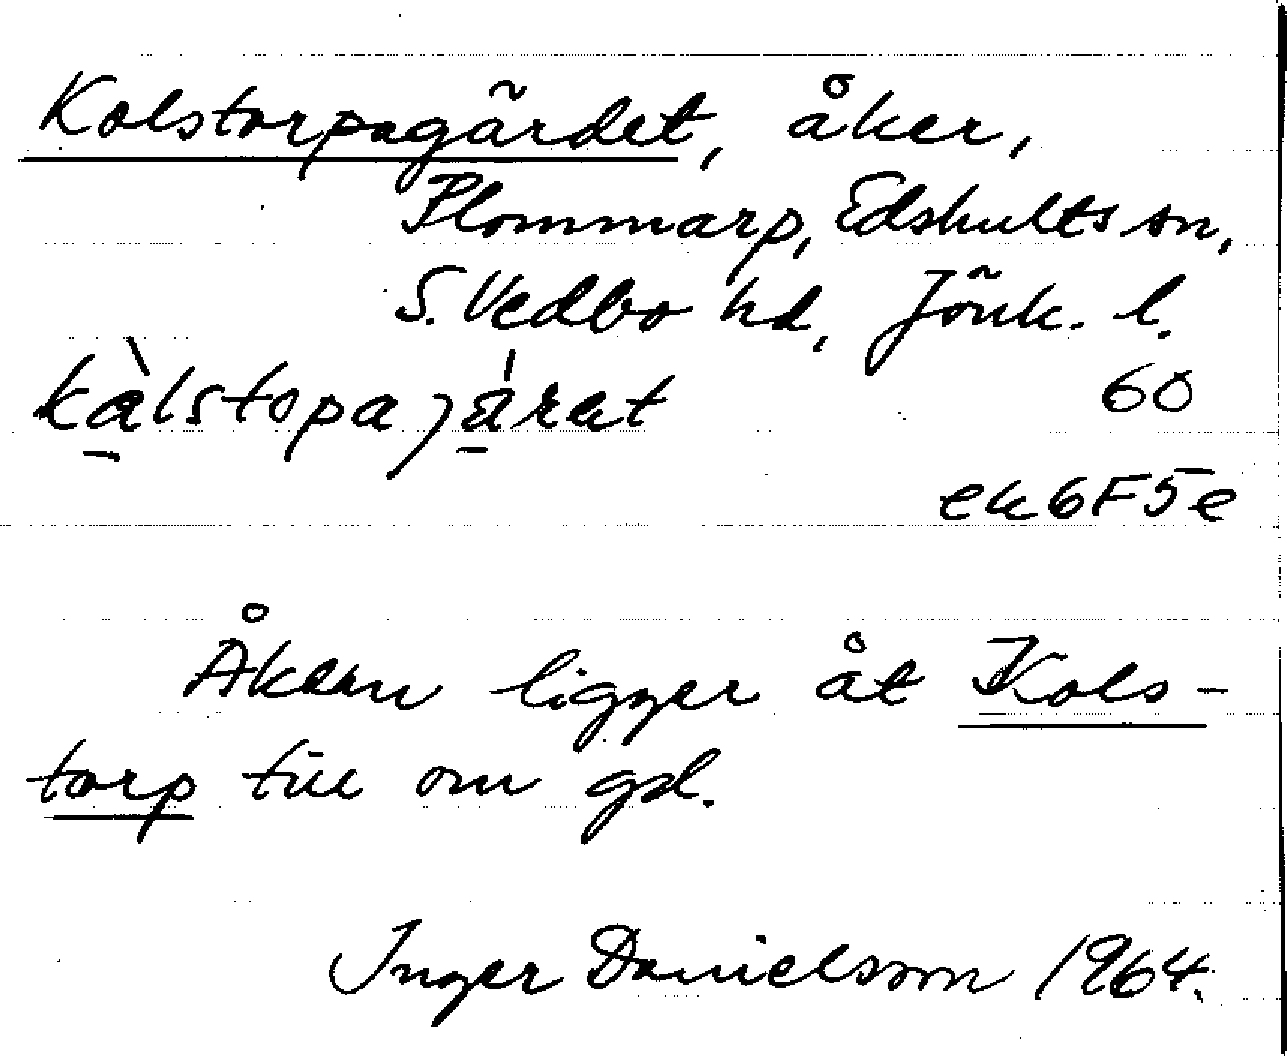 Kolstorpagärdet, åker,
Plommarp, Edshults sn,
S. Vedbo hd, Jönk. l.
kàlstopajä́rat 60
ek6F5e
Åkern ligger åt Kols-
torp till om gd.
Inger Danielsson 1964.